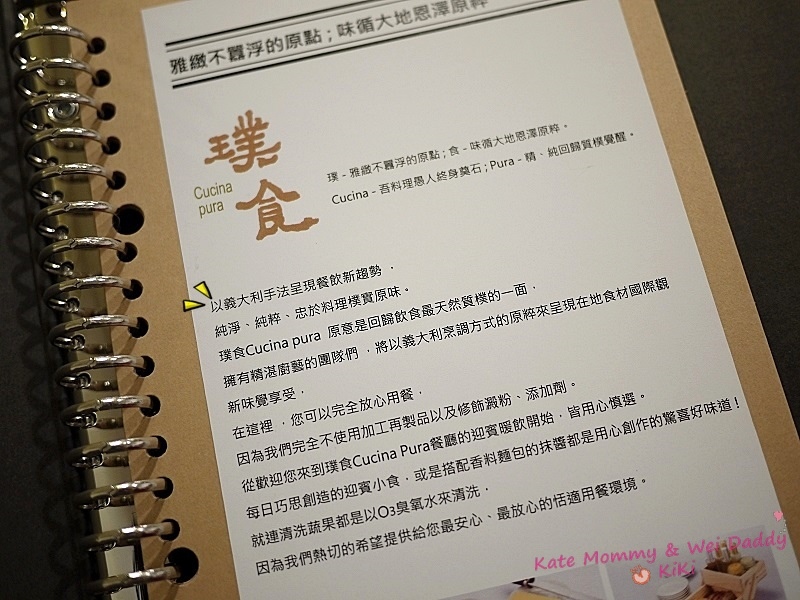 雅緻不囂浮的原點；味循大地恩澤原粹
璞食
Cucina
pura
璞 - 雅緻不囂浮的原點；食 - 味循大地恩澤原粹。
Cucina - 吾料理愚人終身奠石；Pura - 精、純回歸質樸覺醒。
以義大利手法呈現餐飲新趨勢，
純淨、純粹、忠於料理樸實原味。
璞食Cucina pura 原意是回歸飲食最天然質樸的一面，
擁有精湛廚藝的團隊們，將以義大利烹調方式的原粹來呈現在地食材國際觀
新味覺享受，
在這裡，您可以完全放心用餐，
因為我們完全不使用加工再製品以及修飾澱粉、添加劑。
從歡迎您來到璞食Cucina Pura餐廳的迎賓暖飲開始，皆用心慎選。
每日巧思創造的迎賓小食，或是搭配香料麵包的抹醬都是用心創作的驚喜好味道！
就連清洗蔬果都是以O3臭氧水來清洗，
因為我們熱切的希望提供給您最安心、最放心的恬適用餐環境。
Kate Mommy & Wei Daddy
KiKi